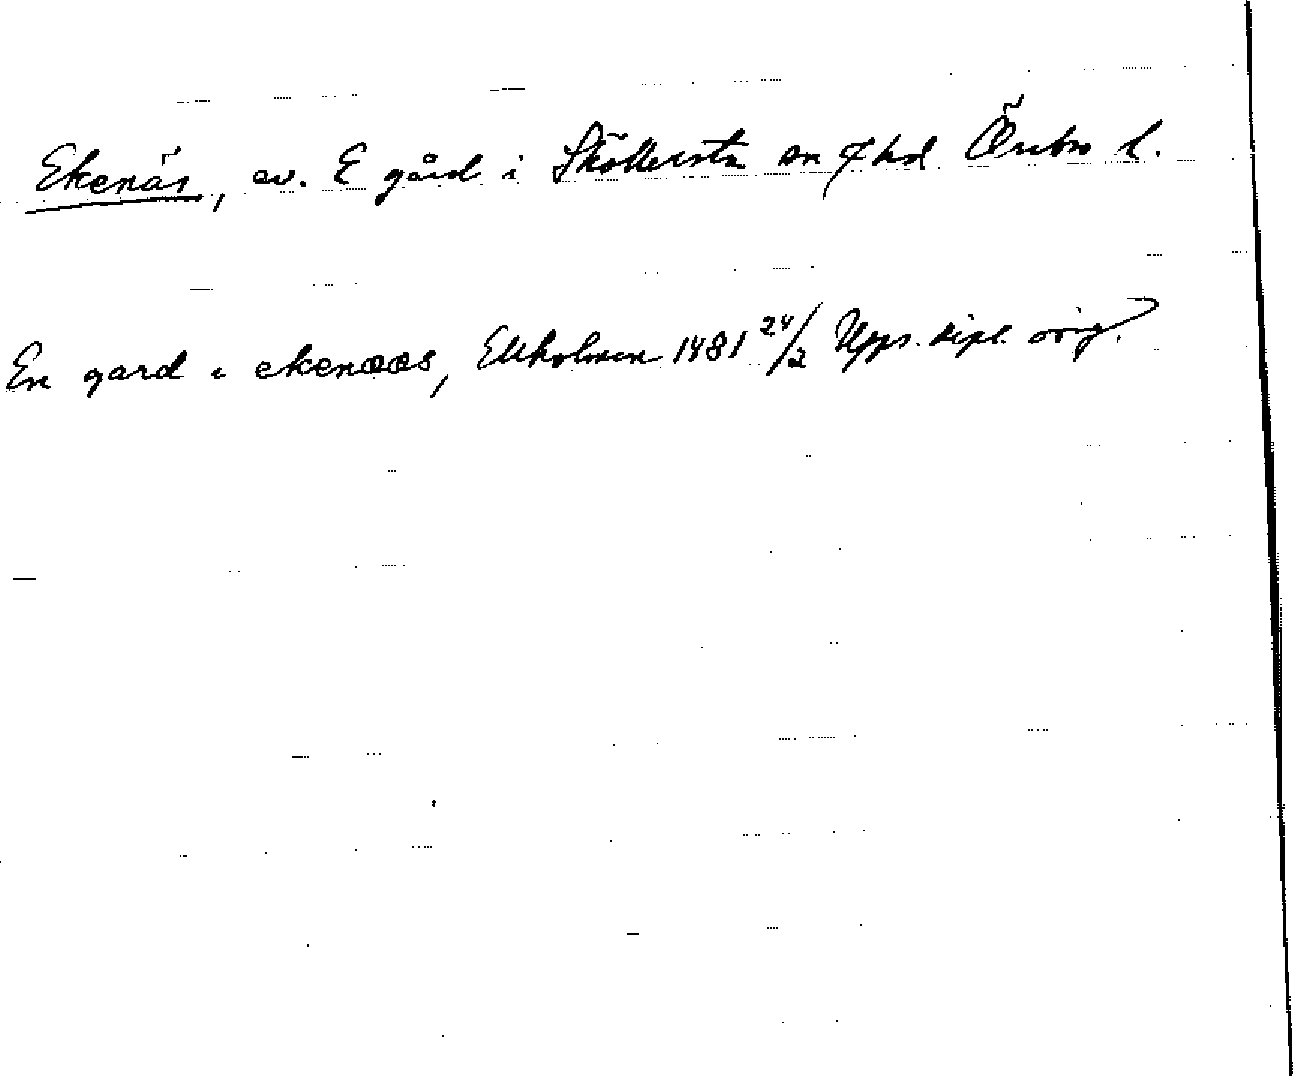 Ekenäs, ev. E gård i Sköllersta sn o hd Örebro l.
En gard i ekenæs, Ekholmen 1481 24/2 Upps. dipl. orig.